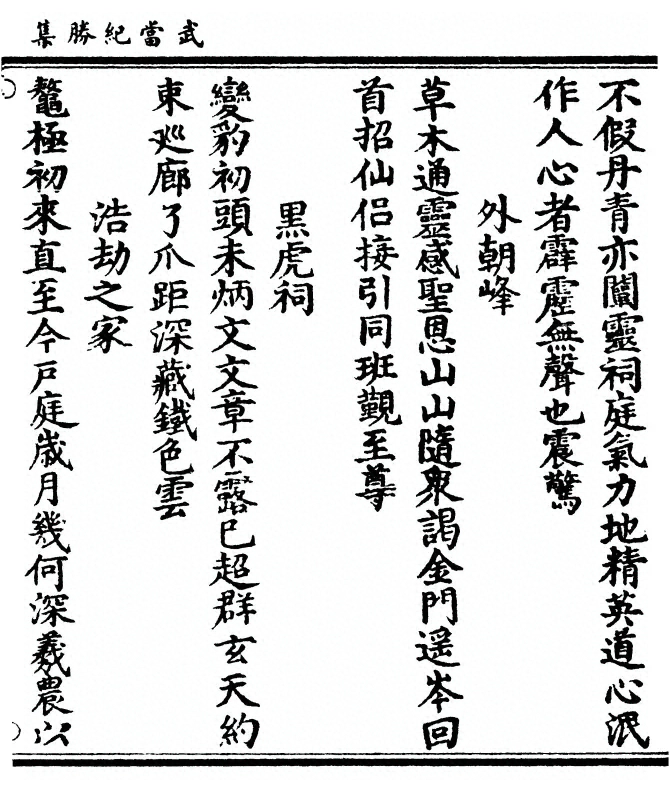 武當紀勝集
不假丹青亦闡靈祠庭氣力地精英道心泯
作人心者霹靂無聲也震驚
外朝峰
草木通靈感聖恩山山隨衆謁金門遥岑回
首招仙侶接引同班覲至尊
黑虎祠
變豹初頭未炳文文章不露已超群玄天約
束巡廊了爪距深藏鐵色雲
浩劫之家
鼇極初來直至今戶庭歲月幾何深羲農以